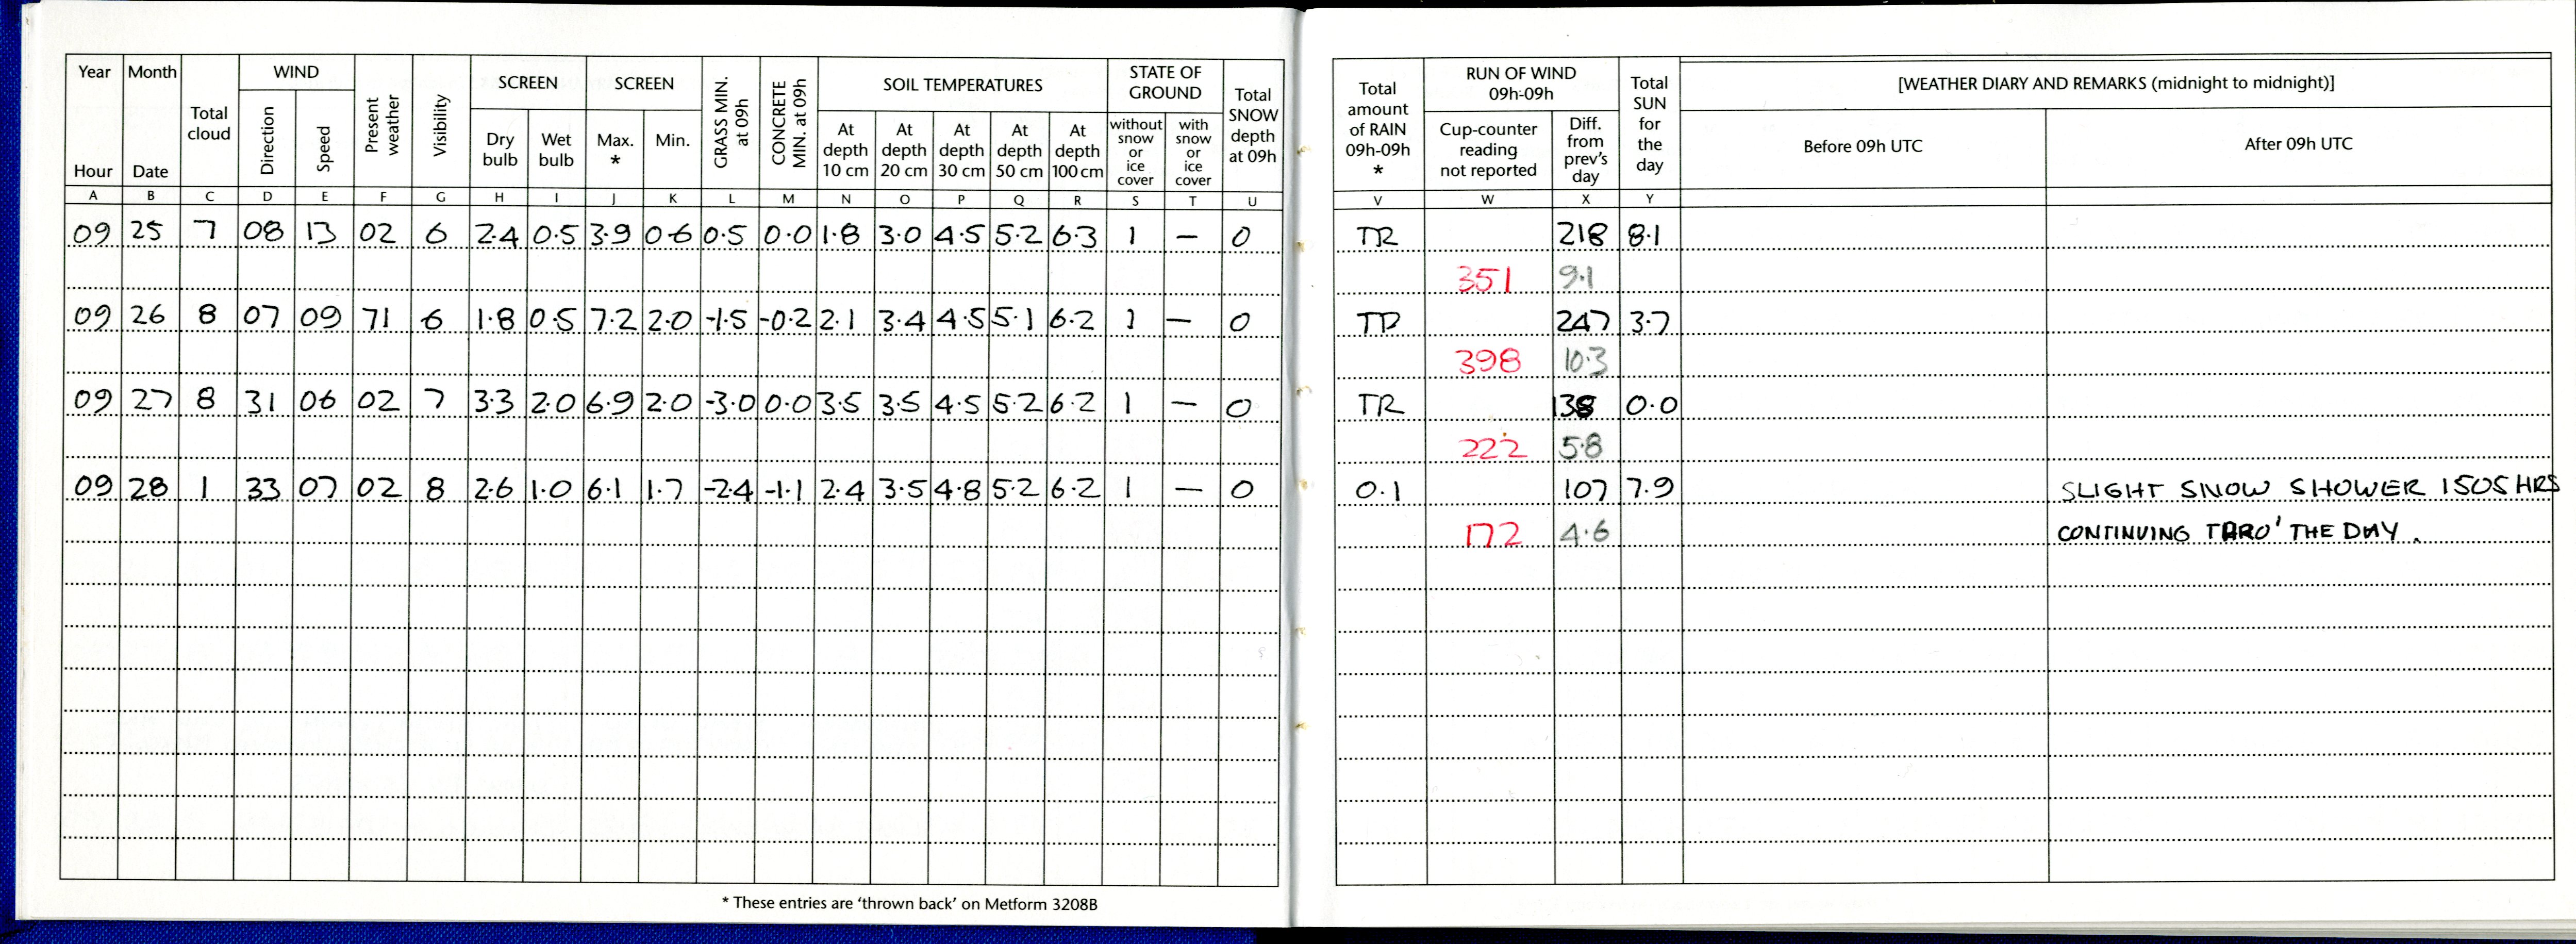 Year Month Total cloud WIND Present weather Visibility SCREEN SCREEN GRASS MIN. at 09h CONCRETE MIN. at 09h SOIL TEMPERATURES STATE OF GROUND Total SNOW depth at 09h
Hour Date Direction Speed Dry bulb Wet bulb Max. * Min. At depth 10 cm At depth 20 cm At depth 30 cm At depth 50 cm At depth 100 cm without snow or ice cover with snow or ice cover
A B C D E F G H I J K L M N O P Q R S T U
09 25 7 08 13 02 6 2.4 0.5 3.9 0.6 0.5 0.0 1.8 3.0 4.5 5.2 6.3 1 — 0
09 26 8 07 09 71 6 1.8 0.5 7.2 2.0 -1.5 -0.2 2.1 3.4 4.5 5.1 6.2 1 — 0
09 27 8 31 06 02 7 3.3 2.0 6.9 2.0 -3.0 0.0 3.5 3.5 4.5 5.2 6.2 1 — 0
09 28 1 33 07 02 8 2.6 1.0 6.1 1.7 -2.4 -1.1 2.4 3.5 4.8 5.2 6.2 1 — 0
* These entries are ‘thrown back’ on Metform 3208B
Total amount of RAIN 09h-09h * RUN OF WIND 09h-09h Total SUN for the day [WEATHER DIARY AND REMARKS (midnight to midnight)]
Cup-counter reading not reported Diff. from prev's day Before 09h UTC After 09h UTC
V W X Y
TR 218 8.1
351 9.1
TR 247 3.7
398 10.3
TR 138 0.0
222 5.8
0.1 107 7.9 SLIGHT SNOW SHOWER 1505 HRS
172 4.6 CONTINUING THRO' THE DAY.